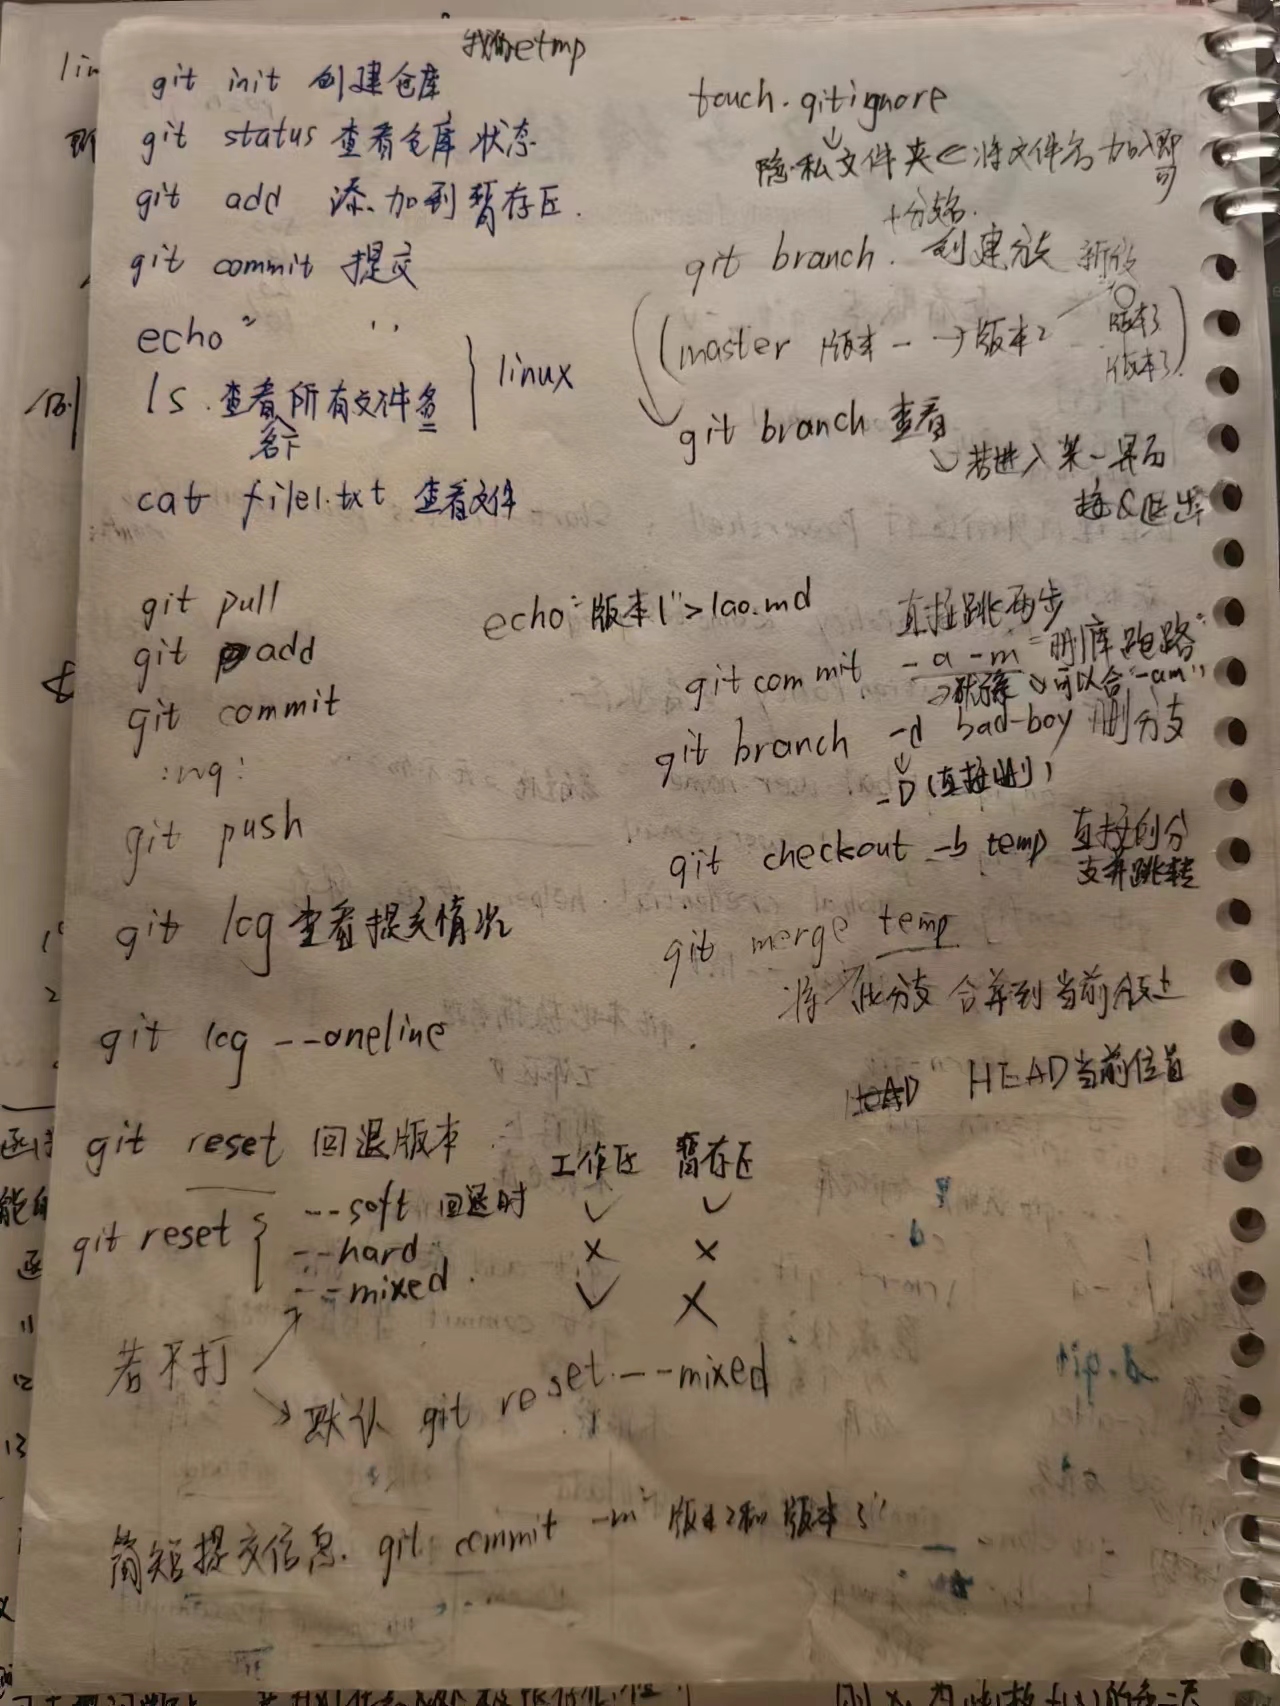 etmp
git init 创建仓库
git status 查看仓库状态
git add 添加到暂存区.
git commit 提交
echo " "
ls. 查看所有文件名
名下
linux
cat file1.txt 查看文件
git pull
git add
git commit
:wq!
git push
git log 查看提交情况
git log --oneline
git reset 回退版本
工作区 暂存区
git reset { --soft 回退时 ✓ ✓
--hard × ×
--mixed. ✓ ×
若不打
默认 git reset --mixed
简短提交信息. git commit -m "版本2和版本3"
touch .gitignore
隐私文件夹 ← 将文件名加入即可
+分支名.
git branch. 创建分支
(master 版本 - → 版本2 版本3
版本3)
git branch 查看
若进入某一界面
按Q退出
echo "版本1" > lao.md
直接跳两步
git commit -a -m "删库跑路"
可以合"-am"
git branch -d bad-boy 删分支
-D (直接删)
git checkout -b temp 直接创分
支并跳转
git merge temp
将 此分支 合并到当前分支上
HEAD HEAD当前位置